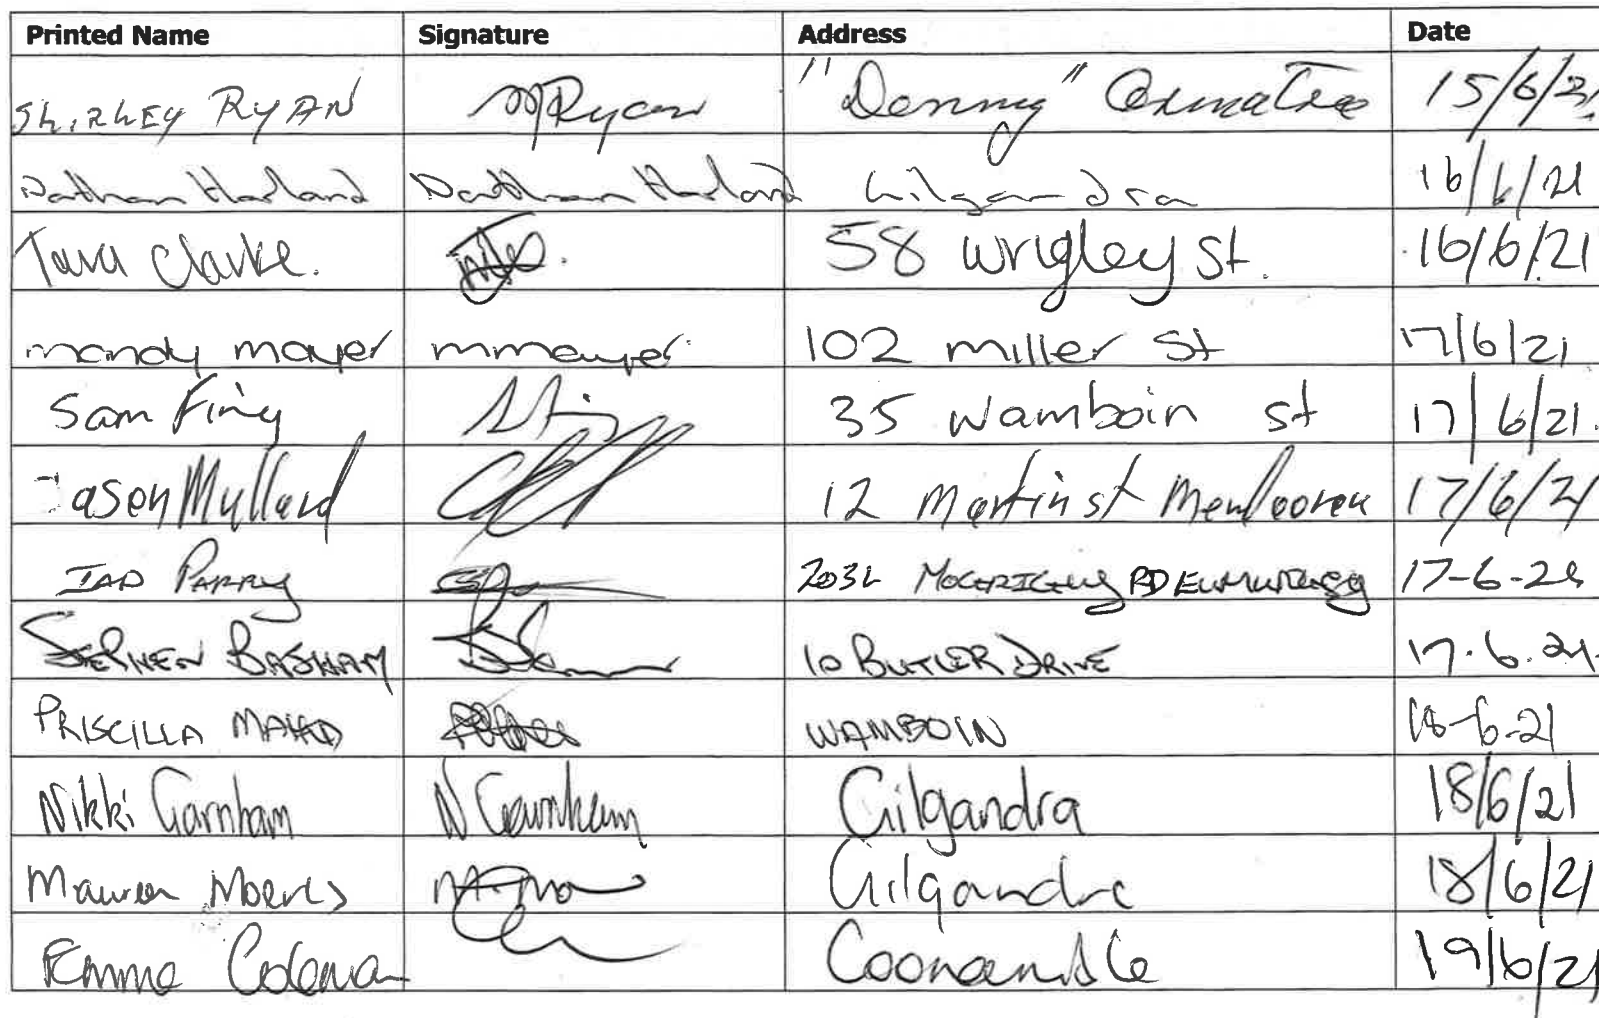 Printed Name Signature Address Date
SHIRLEY RYAN MRyan "Denny" Armatree 15/6/21
Nathan Harland Nathan Harland Gilgandra 16/6/21
Tara Clarke. 58 wrigley st. 16/6/21
mandy mayer mmayer 102 miller st 17/6/21
Sam Finy 35 Wamboin st 17/6/21.
Jason Mullard 12 Martin st Mendooran 17/6/21
IAD PARRY 2032 RD 17-6-21
STEPHEN BASHAM 10 BUTLER DRIVE 17.6.21.
PRISCILLA WAMBOIN 18-6-21
Nikki Garnham N Garnham Gilgandra 18/6/21
Maureen Gilgandra 18/6/21
Emma Coleman Coonamble 19/6/21